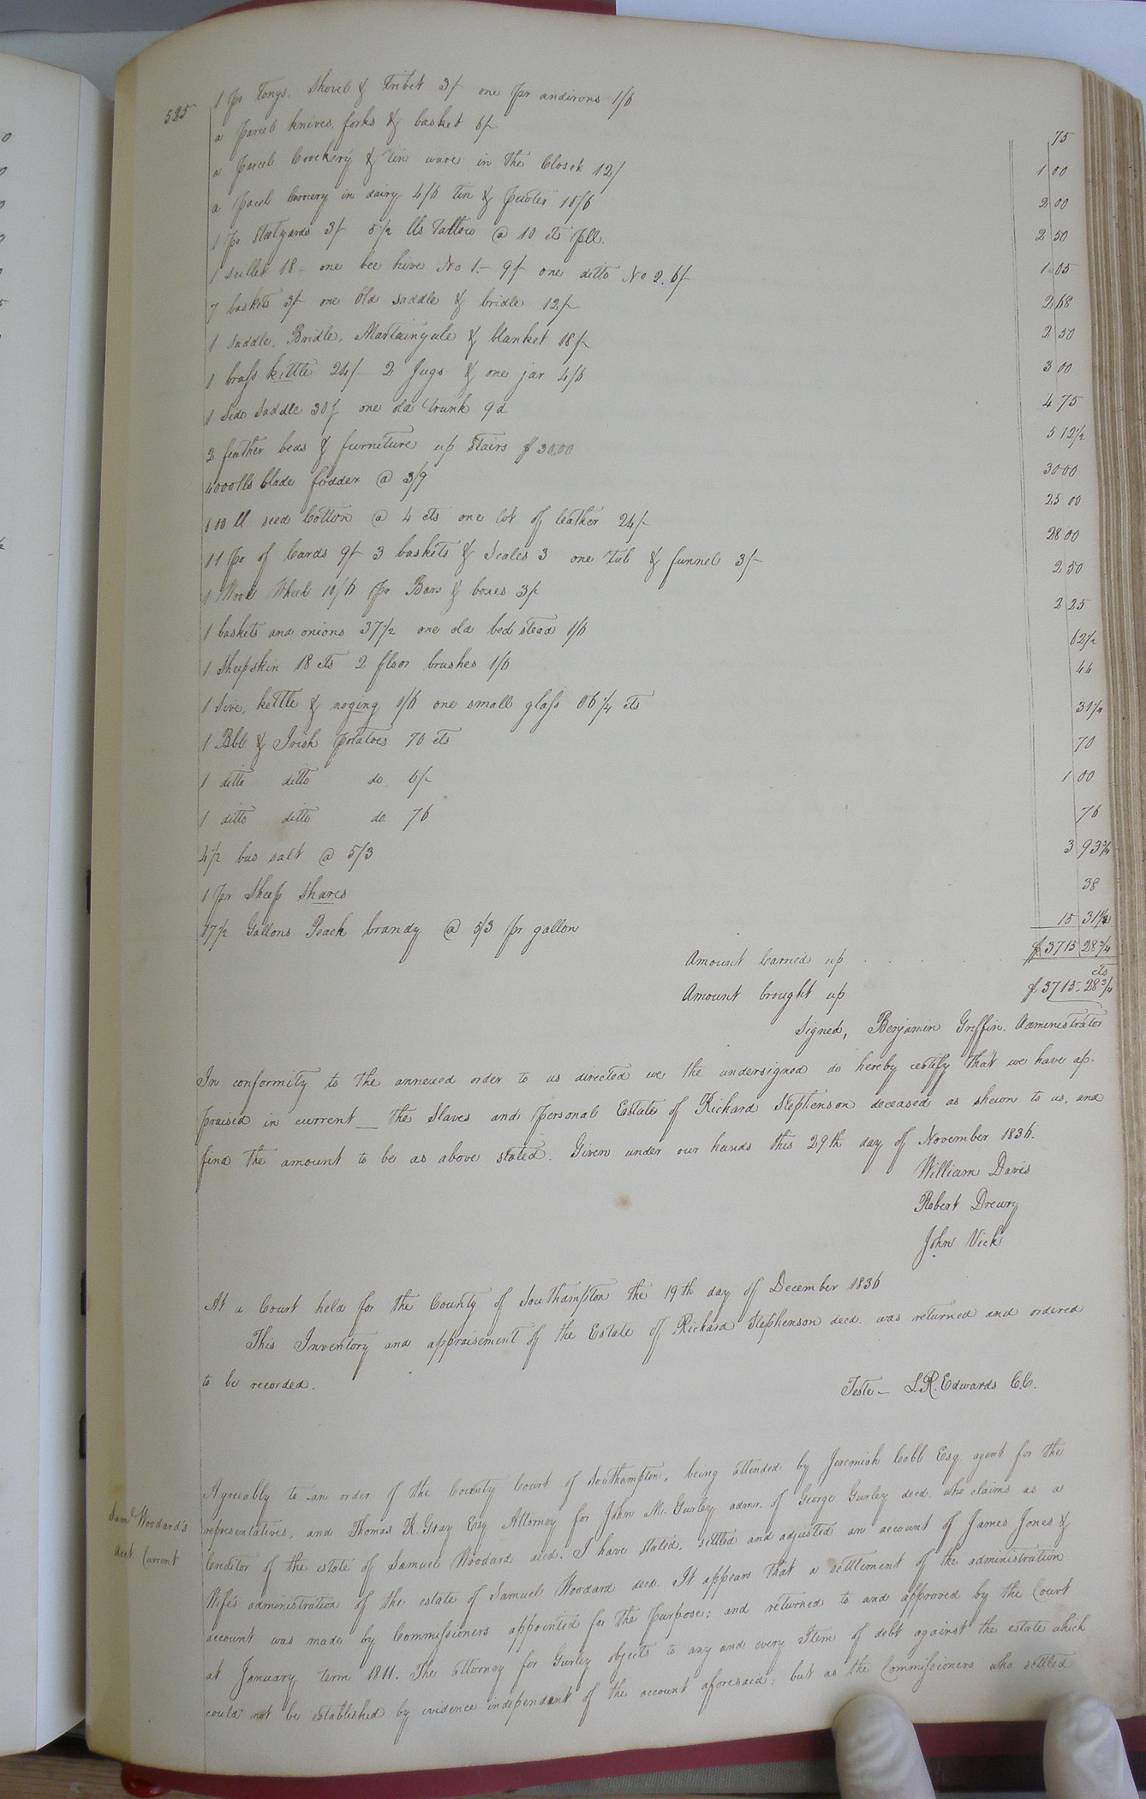 525
1 pr Tongs. Shovel & Tribet 3/- one pr andirons 1/6 75
a parcel knives, forks & basket 6/- 1 00
a parcel Crockery & Tin ware in the Closet 12/ 2 00
a parcel Crocery in dairy 4/6 tin & pewter 10/6 2 50
1 pr Stelyards 3/- 5 1/2 lbs Tallow @ 10 cts pll. 1 05
1 skillet 18 - one bee hive No 1. - 9/- one ditto No 2. 6/- 2 68
7 baskets 3/- one old saddle & bridle 12/- 2 50
1 saddle, Bridle, Martaingale & blanket 18/- 3 00
1 brass kittle 24/- 2 Jugs & one jar 4/6 4 75
1 Side Saddle 30/ one old trunk 9d 5 12 1/2
2 feather beds & furneture up stairs $ 30.00 30 00
4000 lbs blade fodder @ 3/9 25 00
600 ll seed Cotton @ 4 cts one lot of leather 24/- 28 00
11 pr of Cards 9/- 3 baskets & Scales 3 one Tub & funnel 3/- 2 50
1 Wool Wheel 10/6 pr Bars & boxes 3/- 2 25
1 baskets and onions 37 1/2 one old bed stead 1/6 62 1/2
1 Sheepskin 18 cts 2 floor brushes 1/6 46
1 Sive, kettle & noging 1/6 one small glass 06 1/4 cts 31 1/4
1 Bbl & Irish potatoes 70 cts 70
1 ditto ditto do 6/- 1 00
1 ditto ditto do 76 76
4 1/2 bus salt @ 5/3 3 93 3/4
1 pr Sheep shares 38
17 1/2 Gallons Peach brandy @ 5/3 pr gallon 15 31 1/4
Amount Carried up $ 3715 28 3/4
cts
Amount brought up $ 3715 - 28 3/4
Signed, Benjamin Griffin. Administrator
In conformity to the annexed order to us directed we the undersigned do hereby certify that we have ap-
praised in current __ the Slaves and personal Estate of Richard Stephenson deceased as shewn to us, and
find the amount to be as above stated. Given under our hands this 29th day of November 1836.
William Davis
Robert Drewry
John Vick
At a Court held for the County of Southampton the 19th day of December 1836
This Inventory and appraisement of the Estate of Richard Stephenson decd. was returned and ordered
to be recorded.
Teste - L. R. Edwards C.C.
Saml Woodard's
Acct Current
Agreeably to an order of the County Court of Southampton, being attended by Jeremiah Cobb Esq. agent for the
representatives, and Thomas R. Gray Esq Attorney for John M. Gurley admr. of George Gurley decd. who claims as a
Creditor of the estate of Samuel Woodard decd. I have stated, settled and adjusted an account of James Jones &
Wife's administration of the estate of Samuel Woodard decd. It appears that a settlement of the administration
account was made by Commissioners appointed for the purpose; and returned to and approved by the Court
at January term 1811. The attorney for Gurley objects to any and every Item of debt against the estate which
could not be established by evidence independent of the account aforesaid; but as the Commissioners who settled